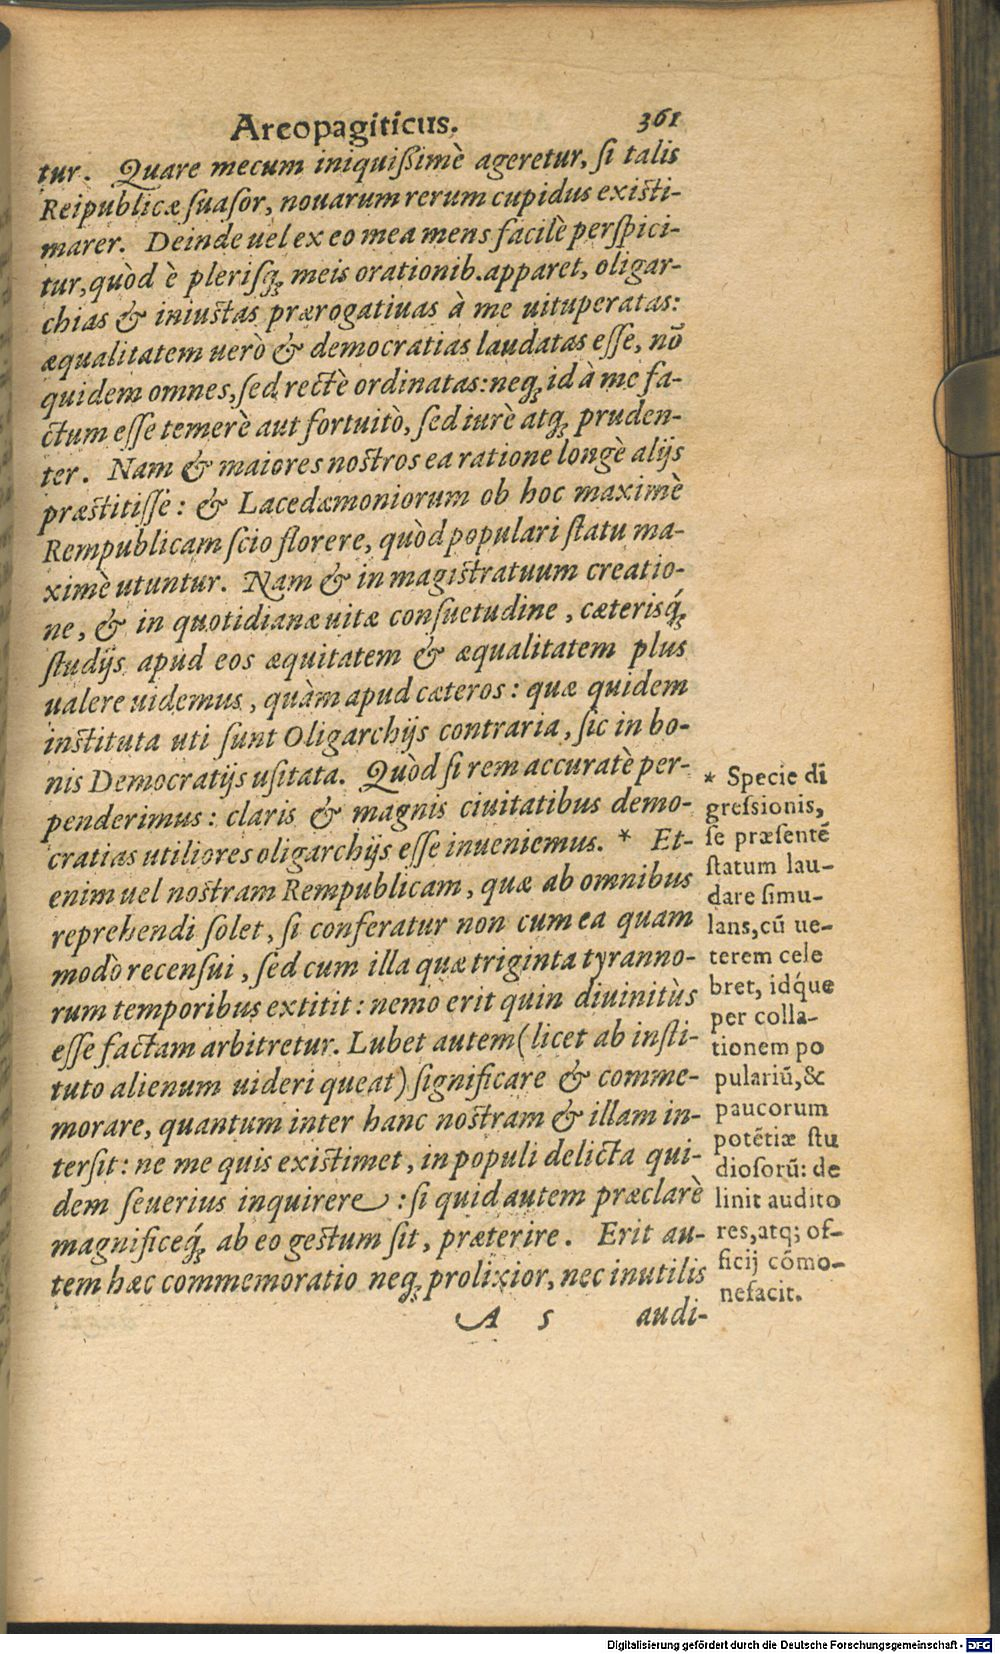 Areopagiticus. 361
tur. Quare mecum iniquißimè ageretur, ſi talis
Reipublicæ ſuaſor, nouarum rerum cupidus exiſti-
marer. Deinde uel ex eo mea mens facilè perſpici-
tur, quòd è pleriſq́ꝫ meis orationib. apparet, oligar-
chias & iniuſtas prærogatiuas à me uituperatas:
æqualitatem uerò & democratias laudatas eſſe, nõ
quidem omnes, ſed rectè ordinatas: neqꝫ id à me fa-
ctum eſſe temerè aut fortuitò, ſed iurè atqꝫ pruden-
ter. Nam & maiores noſtros ea ratione longè alijs
præſtitiſſe: & Lacedæmoniorum ob hoc maximè
Rempublicam ſcio florere, quòd populari ſtatu ma-
ximè utuntur. Nam & in magiſtratuum creatio-
ne, & in quotidianæ uitæ conſuetudine, cæteriſq́ꝫ
ſtudijs apud eos æquitatem & æqualitatem plus
ualere uidemus, quàm apud cæteros: quæ quidem
inſtituta uti ſunt Oligarchijs contraria, ſic in bo-
nis Democratijs uſitata. Quòd ſi rem accuratè per-
penderimus: claris & magnis ciuitatibus demo-
cratias utiliores oligarchijs eſſe inueniemus. * Et-
enim uel noſtram Rempublicam, quæ ab omnibus
reprehendi ſolet, ſi conferatur non cum ea quam
modò recenſui, ſed cum illa quæ triginta tyranno-
rum temporibus extitit: nemo erit quin diuinitùs
eſſe factam arbitretur. Lubet autem (licet ab inſti-
tuto alienum uideri queat) ſignificare & comme-
morare, quantum inter hanc noſtram & illam in-
terſit: ne me quis exiſtimet, in populi delicta qui-
dem ſeuerius inquirere: ſi quid autem præclarè
magnificeq́ꝫ ab eo geſtum ſit, præterire. Erit au-
tem hæc commemoratio neqꝫ prolixior, nec inutilis
A 5 audi-
* Specie di
greſsionis,
ſe præſentẽ
ſtatum lau-
dare ſimu-
lans, cũ ue-
terem cele
bret, idq́ue
per colla-
tionem po
pulariũ, &
paucorum
potẽtiæ ſtu
dioſorũ: de
linit audito
res, atq; of-
ficij cõmo-
nefacit.
Digitalisierung gefördert durch die Deutsche Forschungsgemeinschaft - DFG